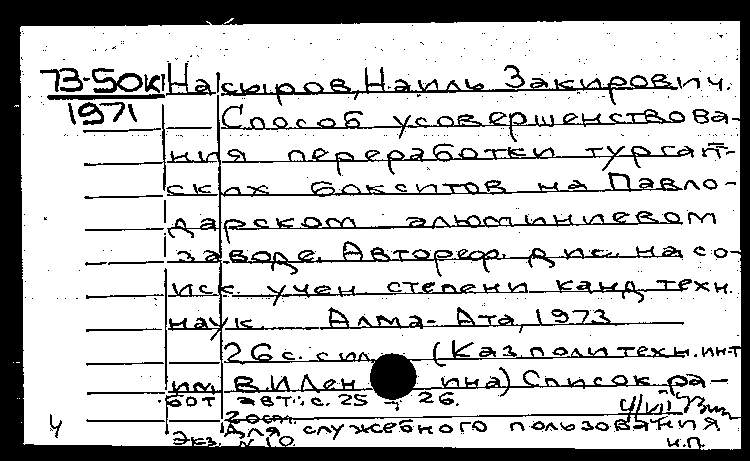 73-50к Насыров, Наиль Закирович.
1971 Способ усовершенствова-
ния переработки тургай-
ских бокситов на Павло-
дарском алюминиевом
заводе. Автореф. дис. на со-
иск. учен. степени канд. техн.
наук. Алма-Ата, 1973
26 с. с ил. (Каз. политехн. ин-т
им. В.И. Ленина) Список ра-
бот авт.: с. 25-26.
Для служебного пользования
Экз. №10 н.п.